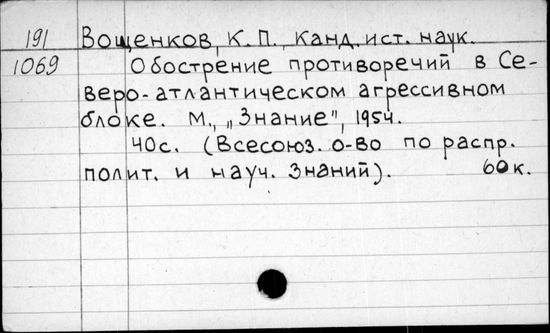 191 Вощенков, К.П., канд. ист. наук.
1069 Обострение противоречий в Се-
веро-атлантическом агрессивном
блоке. М., „Знание", 1954.
40с. (Всесоюз. о-во по распр.
полит. и науч. знаний). 60к.